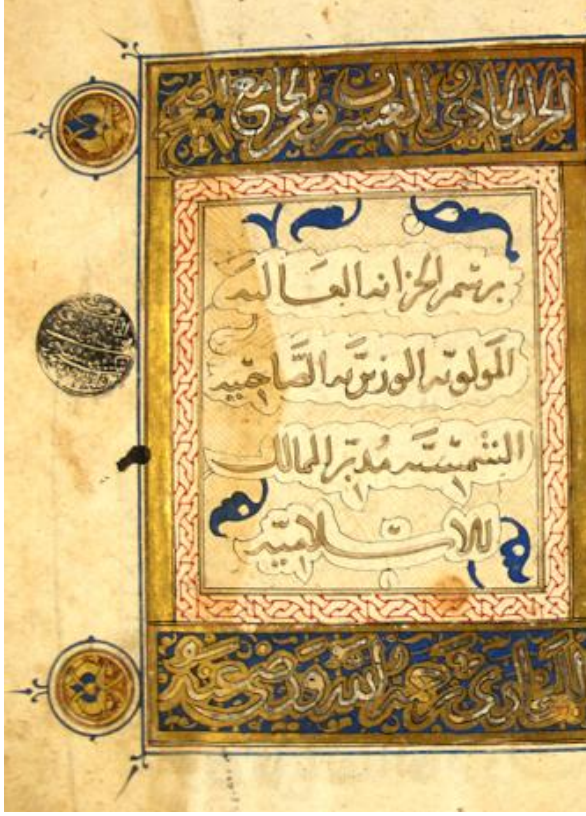 الجزء الحادي والعشرون من الجامع الصحيح
برسم الخزانه العاليه
المولويه الوزيريه الصاحبيه
الشمسيه مدبر الممالك
الاسلاميه
البخاري رحمه الله ورضي عنه